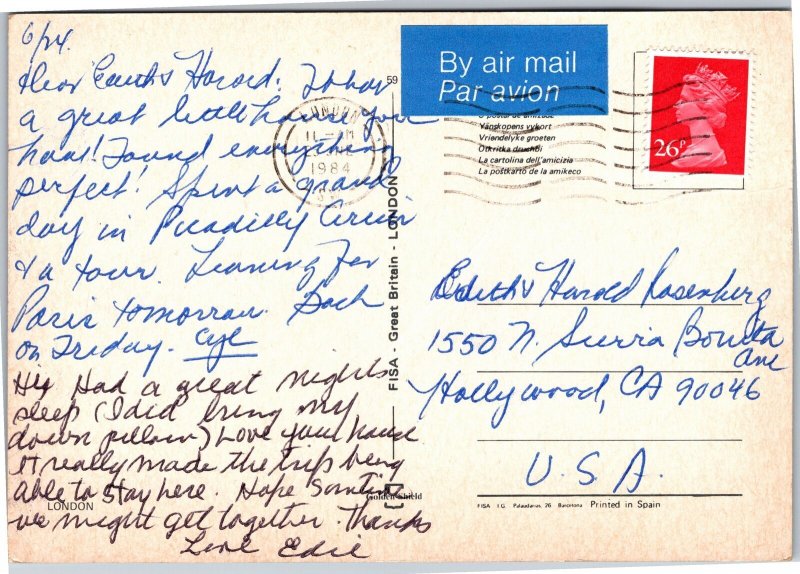 6/24
Dear Edith & Harold: It has
a great little house you
have! Found everything
perfect! Spent a grand
day in Picadilly Circus
& a tour. Leaving for
Paris tomorrow. Back
on Friday.
Hi, Had a great nights
sleep (I did bring my
down pillow) Love your house
It really made the trip being
able to stay here. Hope
we might get together. Thanks
Love Edie
LONDON
59
FISA - Great Britain - LONDON
Golden Shield
By air mail
Par avion
LONDON
11-AM
1984
26P
Vänskapens vykort
Vriendelyke groeten
Otkritka druchbi
La cartolina dell'amicizia
La postkarto de la amikeco
Edith & Harold Rosenberg
1550 N. Sierra Bonita
Ave
Hollywood, CA 90046
U.S.A.
FISA I.G. Palaudarias, 26 Barcelona Printed in Spain